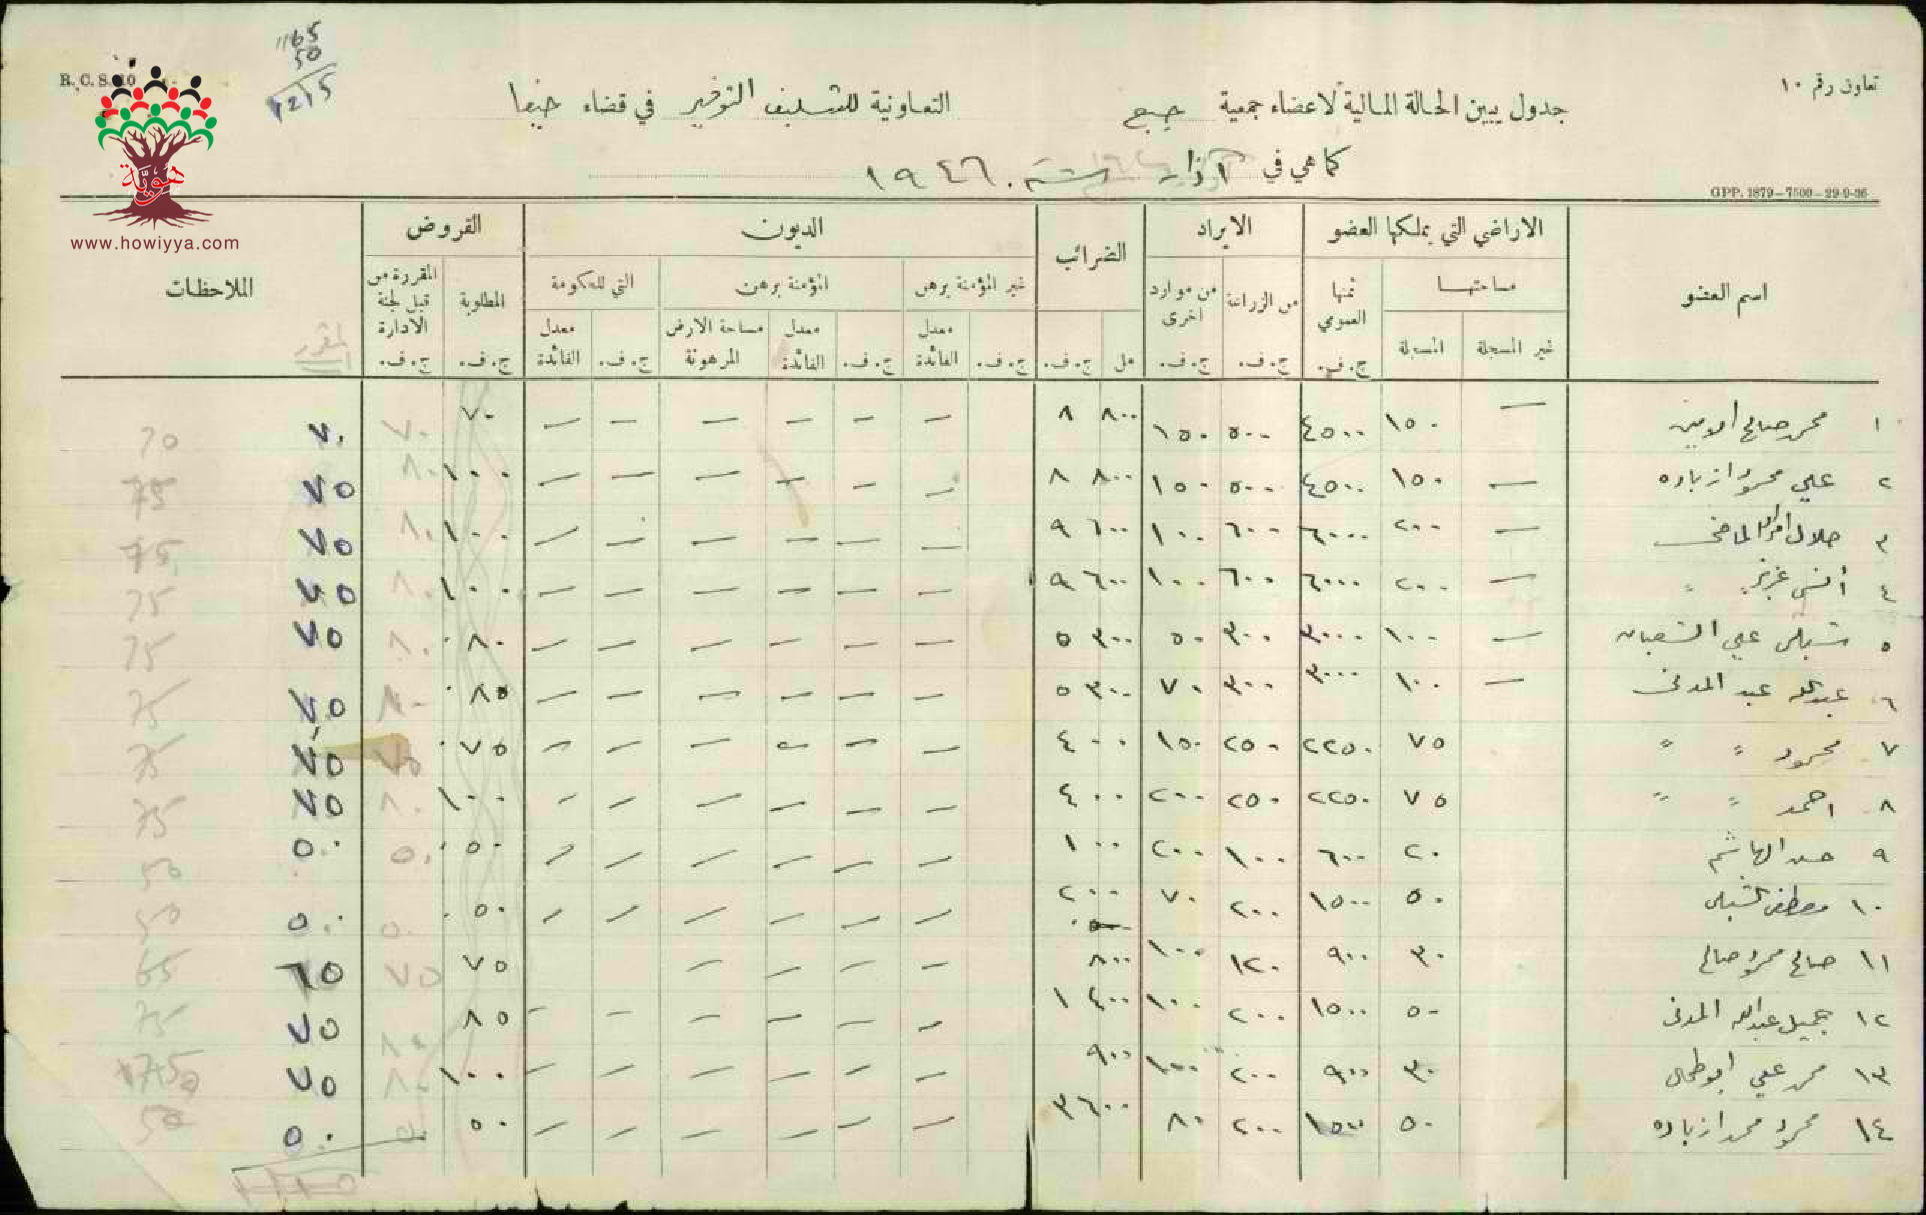 1165
50
1215
R. C. S. 10
تعاون رقم ١٠
جدول يبين الحالة المالية لاعضاء جمعية جبع التعاونية للتسليف التوفير في قضاء حيفا
كما هي في آذار سنة ١٩٤٦
GPP. 1879–7500–29-9-36
هويّة
www.howiyya.com
اسم العضو
الاراضي التي يملكها العضو
الايراد
الضرائب
الديون
القروض
الملاحظات
مساحتها
ثمنها العمومي
من الزراعة
من موارد اخرى
غير المؤمنة برهن
المؤمنة برهن
التي للحكومة
المطلوبة
المقررة من قبل لجنة الادارة
المقرر
غير المسجلة
المسجلة
ج. ف.
ج. ف.
ج. ف.
مل
ج. ف.
ج. ف.
معدل الفائدة
ج. ف.
معدل الفائدة
مساحة الارض المرهونة
ج. ف.
معدل الفائدة
ج. ف.
ج. ف.
١ محمد صالح الامين — ١٥٠ ٤٥٠٠ ٥٠٠ ١٥٠ ٨٠٠ ٨ — — — — — — ٧٠ ٧٠ ٧٠ 70
٢ علي محمود ازباره — ١٥٠ ٤٥٠٠ ٥٠٠ ١٥٠ ٨٠٠ ٨ — — — — — — ١٠٠ ٨٠ ٧٥ 75
٣ — ٢٠٠ ٦٠٠٠ ٦٠٠ ١٠٠ ٦٠٠ ٩ — — — — — — ١٠٠ ٨٠ ٧٥ 75
٤ — ٢٠٠ ٦٠٠٠ ٦٠٠ ١٠٠ ٦٠٠ ٩ — — — — — — ١٠٠ ٨٠ ٧٥ 75
٥ شبلي علي الشعبان — ١٠٠ ٣٠٠٠ ٣٠٠ ٥٠ ٣٠٠ ٥ — — — — — — ٨٠ ٨٠ ٧٥ 75
٦ عبدالله عبد المدني — ١٠٠ ٣٠٠٠ ٣٠٠ ٧٠ ٣٠٠ ٥ — — — — — — ٨٥ ٨٠ ٧٥ 75
٧ محمود " " ٧٥ ٢٢٥٠ ٢٥٠ ١٥٠ ٤٠٠ — — — — — — ٧٥ ٧٥ ٧٥ 75
٨ احمد " " ٧٥ ٢٢٥٠ ٢٥٠ ٢٠٠ ٤٠٠ — — — — — — ١٠٠ ٨٠ ٧٥ 75
٩ حسن الهاشم ٢٠ ٦٠٠ ١٠٠ ٢٠٠ ١٠٠ — — — — — — ٥٠ ٥٠ ٥٠ 50
١٠ مصطفى الشبلي ٥٠ ١٥٠٠ ٢٠٠ ٧٠ ٢٠٠ — — — — — — ٥٠ ٥٠ ٥٠ 50
١١ صالح محمود صالح ٣٠ ٩٠٠ ١٢٠ ١٠٠ ٨٠٠ — — — — ٧٥ ٧٥ ٦٥ 65
١٢ جميل عبدالله المدني ٥٠ ١٥٠٠ ٢٠٠ ١٠٠ ٤٠٠ ١ — — — — — — ٨٥ ٨٠ ٧٥ 75
١٣ محمد علي ٣٠ ٩٠٠ ٢٠٠ ١٥٠ ٩٠٠ — — — — — — ١٠٠ ٨٠ ٧٥ 75
١٤ محمود محمد ازباره ٥٠ ١٥٠٠ ٢٠٠ ٨٠ ٦٠٠ ٣ — — — — — — ٥٠ ٥٠ ٥٠ 50